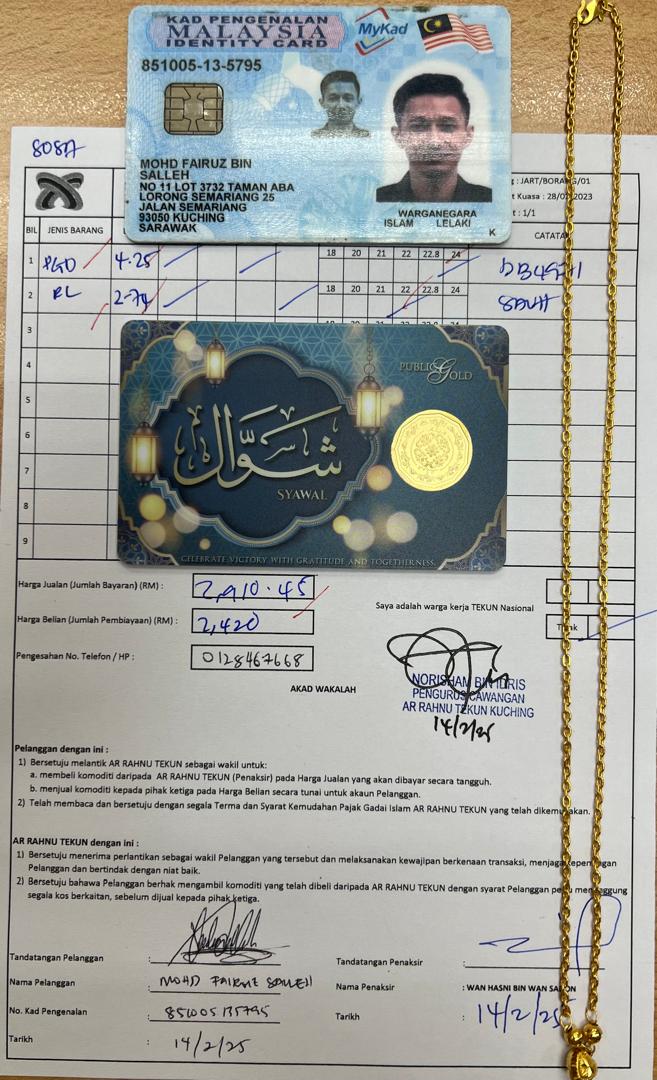 KAD PENGENALAN
MALAYSIA
IDENTITY CARD
MyKad
851005-13-5795
MOHD FAIRUZ BIN
SALLEH
NO 11 LOT 3732 TAMAN ABA
LORONG SEMARIANG 25
JALAN SEMARIANG
93050 KUCHING
SARAWAK
WARGANEGARA
ISLAM LELAKI
K
: JART/BORANG/01
Kuasa : 28/0 2023
: 1/1
BIL JENIS BARANG CATATA
1 4.25 18 20 21 22 22.8 24
2 RL 2.74 18 20 21 22 22.8 24
3
4
5
6
7
8
9
PUBLIC GOLD
شوّال
SYAWAL
CELEBRATE VICTORY WITH GRATITUDE AND TOGETHERNESS
Harga Jualan (Jumlah Bayaran) (RM) : 2,910.45
Saya adalah warga kerja TEKUN Nasional
Harga Belian (Jumlah Pembiayaan) (RM) : 2,420
Pengesahan No. Telefon / HP : 0128467668
AKAD WAKALAH
NORISHAM BIN IDRIS
PENGURUS CAWANGAN
AR RAHNU TEKUN KUCHING
14/2/25
Pelanggan dengan ini :
1) Bersetuju melantik AR RAHNU TEKUN sebagai wakil untuk:
a. membeli komoditi daripada AR RAHNU TEKUN (Penaksir) pada Harga Jualan yang akan dibayar secara tangguh.
b. menjual komoditi kepada pihak ketiga pada Harga Belian secara tunai untuk akaun Pelanggan.
2) Telah membaca dan bersetuju dengan segala Terma dan Syarat Kemudahan Pajak Gadai Islam AR RAHNU TEKUN yang telah dikemukakan.
AR RAHNU TEKUN dengan ini :
1) Bersetuju menerima perlantikan sebagai wakil Pelanggan yang tersebut dan melaksanakan kewajipan berkenaan transaksi, menjaga kepentingan
Pelanggan dan bertindak dengan niat baik.
2) Bersetuju bahawa Pelanggan berhak mengambil komoditi yang telah dibeli daripada AR RAHNU TEKUN dengan syarat Pelanggan perlu menanggung
segala kos berkaitan, sebelum dijual kepada pihak ketiga.
Tandatangan Pelanggan : Tandatangan Penaksir :
Nama Pelanggan : MOHD FAIRUZ SALLEH Nama Penaksir : WAN HASNI BIN WAN
No. Kad Pengenalan : 851005135795 Tarikh : 14/2/25
Tarikh : 14/2/25